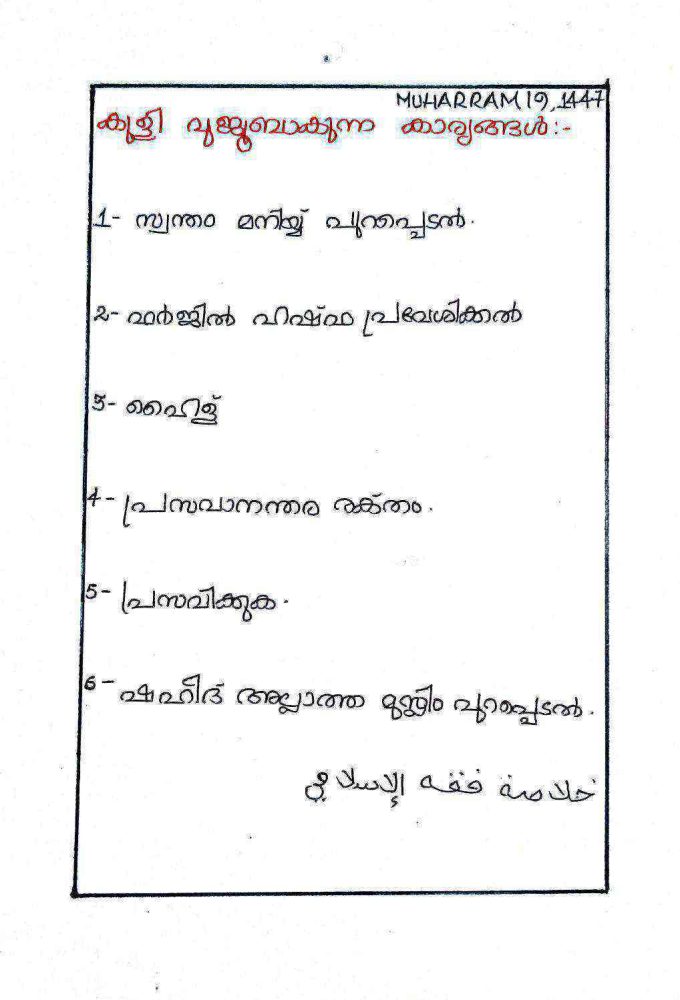 MUHARRAM 19, 1447
കുളി വുജൂബാകുന്ന കാര്യങ്ങൾ:-
1- സ്വന്തം മനിയ്യ് പുറപ്പെടൽ.
2- ഫർജിൽ ഹഷ്ഫ പ്രവേശിക്കൽ
3- ഹൈള്
4- പ്രസവാനന്തര രക്തം.
5- പ്രസവിക്കുക.
6- ഷഹീദ് അല്ലാത്ത മുസ്ലിം പുറപ്പെടൽ.
خلاصة فقه الإسلامي